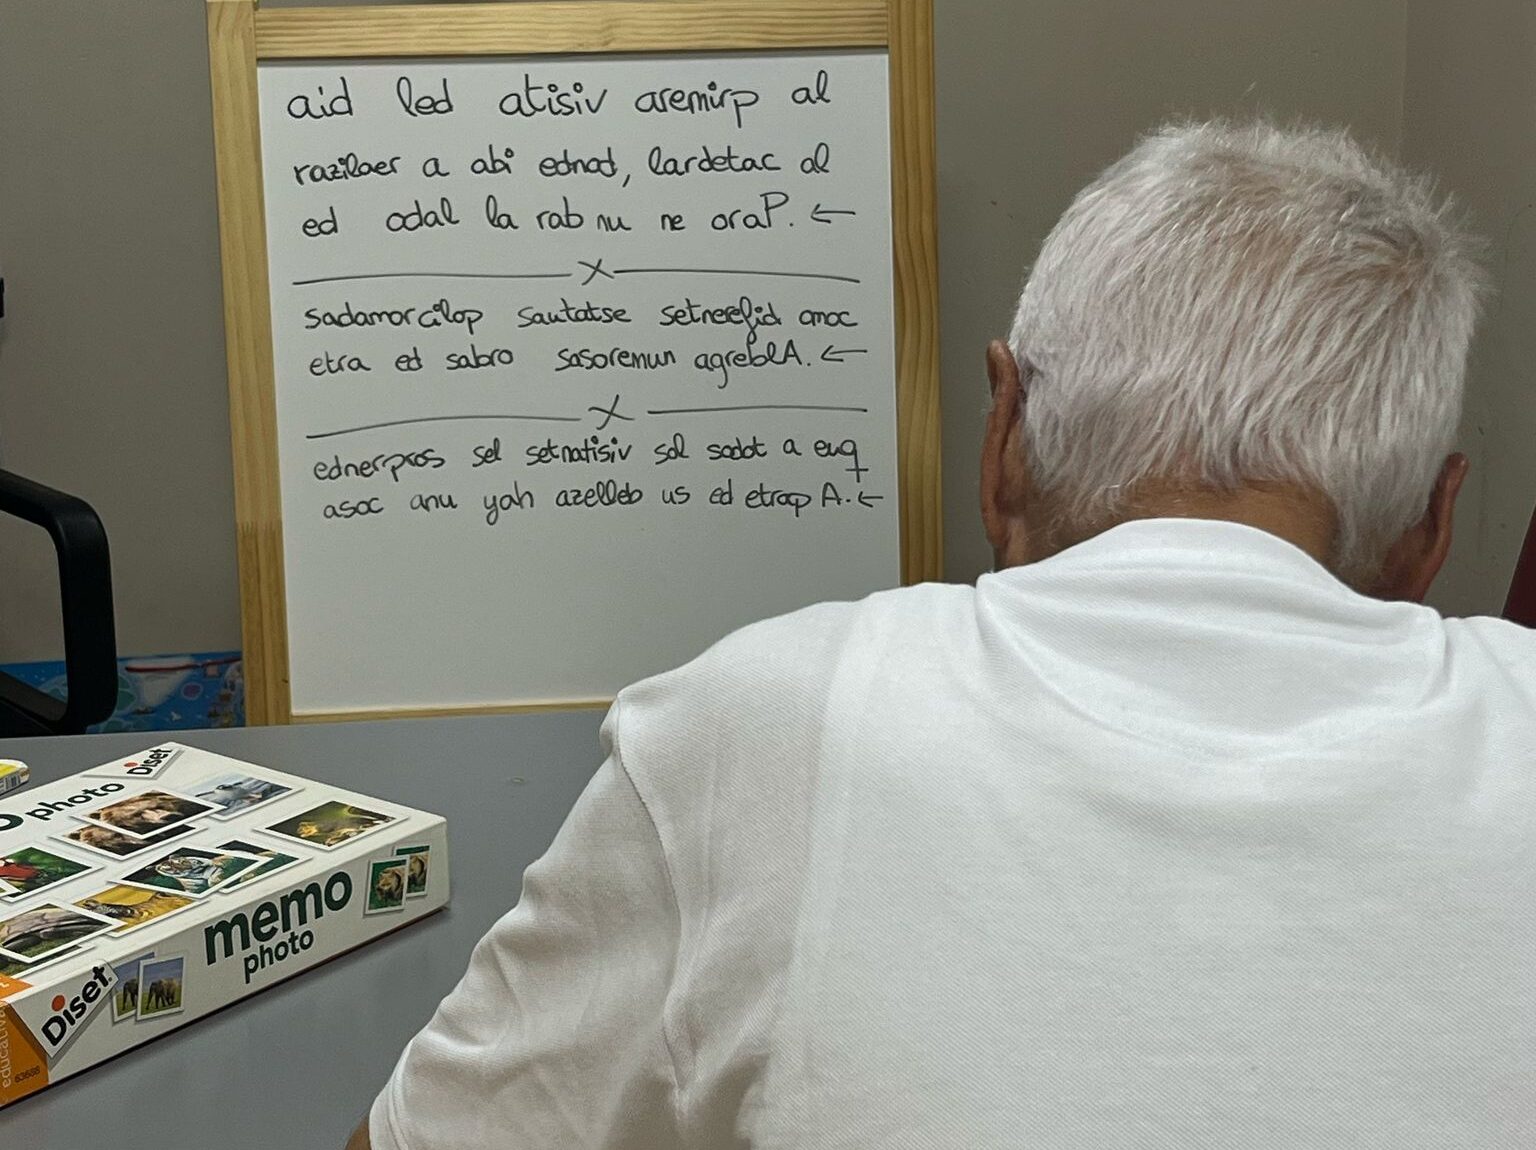 aid led atisiv aremirp al
razilaer a abi ednod, lardetac al
ed odal la rab nu ne oraP. ←
X
sadamorcilop sautatse setnerefid omoc
etra ed sarbo sasoremun agreblA. ←
X
ednerpros sel setnatisiv sol sodot a euq
asoc anu yah azelleb us ed etrap A. ←
photo
Diset
memo
photo
Diset
educativa
63688